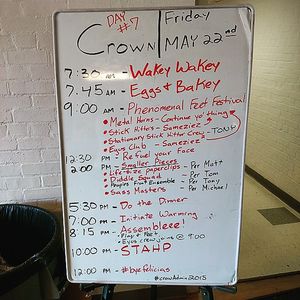 DAY #7
Crown
Friday
MAY 22nd
7:30 AM - Wakey Wakey
7:45 AM - Eggs & Bakey
9:00 AM - Phenomenal Feet Festival
• Metal Horns - Continue yo' thing
• Stick Hitters - Sameziez
TOU
• Stationary Stick Hitter Crew
• Euos Club - Sameziez
12:30 PM - Re Fuel your Face
2:00 PM - Smaller Pieces
• Life-size paperclips - Per Matt
• Diddle Squad - Per Tom
• Peoples Front Ensemble - Per Tony
• Sass Masters - Per Michael
5:30 PM - Do the Dinner
7:00 PM - Initiate Warming
8:15 PM - Assembleee!
• Play & Feet
• Euos crew joins @ 9:00
10:00 PM - STAHP
12:00 PM - #byefelicias
#crownAdmin2015